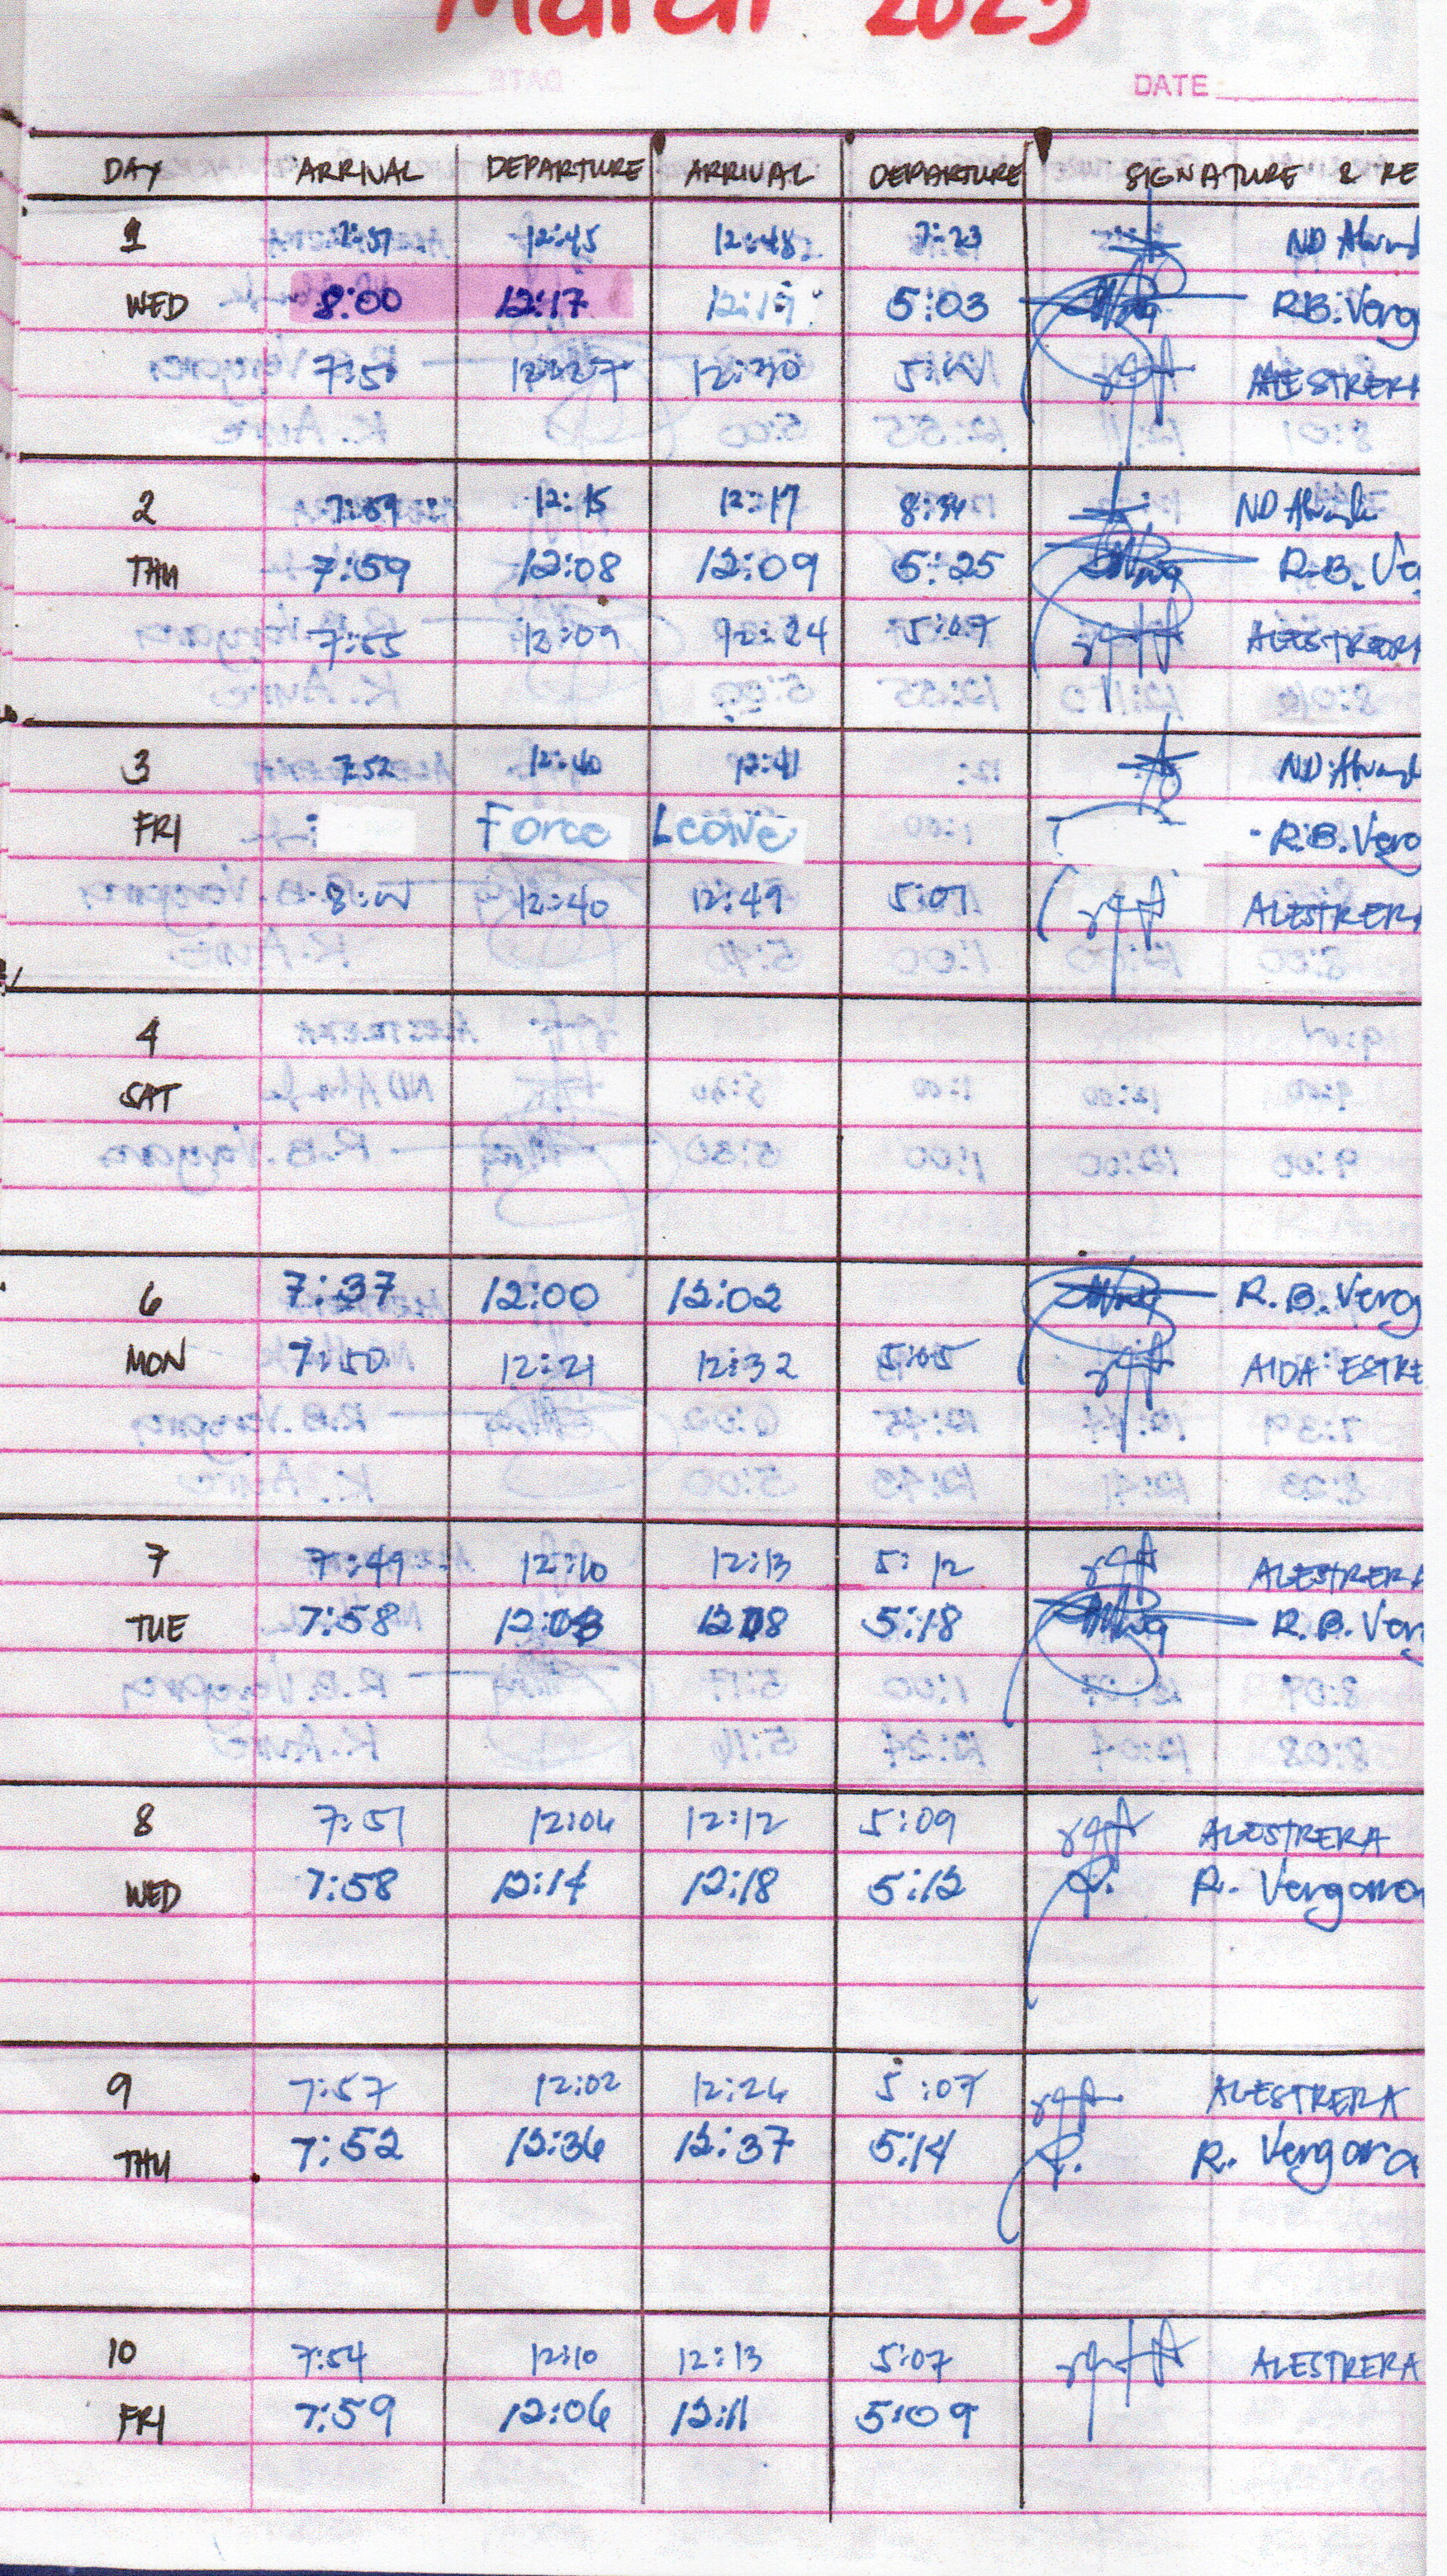 March 2023
DATE
DAY ARRIVAL DEPARTURE ARRIVAL DEPARTURE SIGNATURE & RE
1 7:57 12:45 12:48 7:23 ND
WED 8:00 12:17 12:19 5:03 R.B. Verg
12:27 12:30 ALESTRERA
2 7:59 12:15 12:17 8:34 ND
THU 7:59 12:08 12:09 5:25 R.B. Ve
7:55 12:09 12:24 5:07 ALESTRERA
3 7:52 12:40 12:41 ND
FRI Force Leave R.B. Verg
12:40 12:49 5:07 ALESTRERA
4
SAT
6 7:37 12:00 12:02 R.B. Verg
MON 7:50 12:21 12:32 5:05 AIDA ESTRE
7 7:49 12:10 12:13 5:12 ALESTRERA
TUE 7:58 12:03 5:18 R.B. Ver
8 7:51 12:06 12:12 5:09 ALESTRERA
WED 7:58 12:14 12:18 5:12 R. Vergara
9 7:57 12:02 12:26 5:07 ALESTRERA
THU 7:52 12:36 12:37 5:14 R. Vergara
10 7:54 12:10 12:13 5:07 ALESTRERA
FRI 7:59 12:06 12:11 5:09